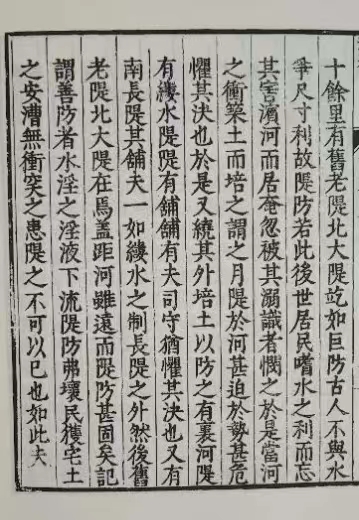 十餘里有舊老隄北大隄屹如巨防古人不與水
爭尺寸利故隄防若此後世居民嗜水之利而忘
其害濵河而居奄忽被其溺識者憫之於是當河
之衝築土而培之謂之月隄於河甚迫於勢甚危
懼其決也於是又繞其外培土以防之有裏河隄
有縷水隄隄有舖舖有夫司守猶懼其決也又有
南長隄其舖夫一如縷水之制長隄之外然後舊
老隄北大隄在焉蓋距河雖遠而隄防甚固矣記
謂善防者水淫之淫液下流隄防弗壞民獲宅土
之安漕無衝突之患隄之不可以已也如此夫